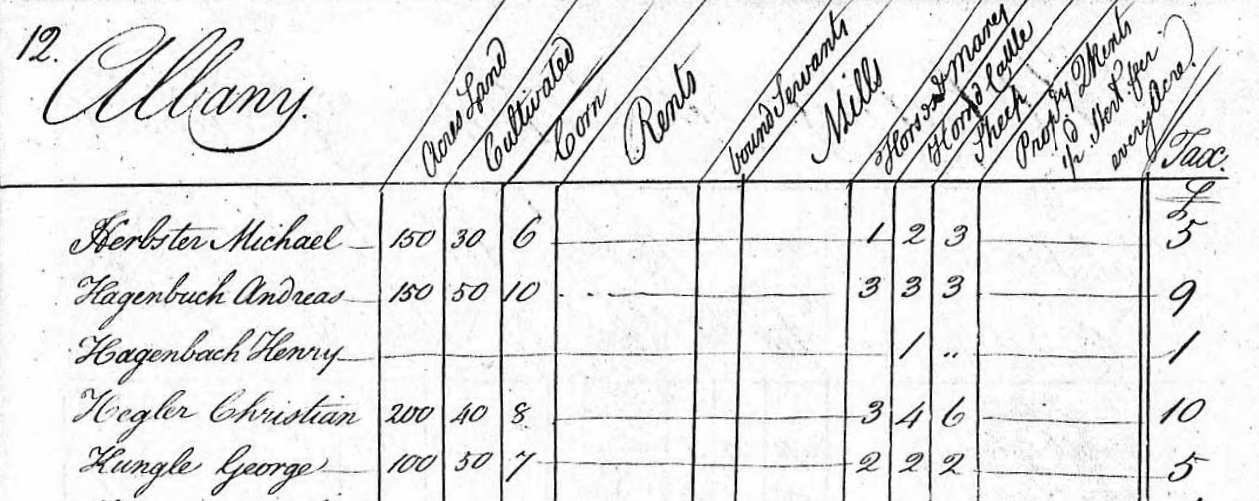 12. Albany.
Acres Land
Cultivated
Corn
Rents
bound Servants
Mills
Horses and Mares
Horned Cattle
Sheep
every Acre.
Tax.
£
Herbster Michael 150 30 6 1 2 3 5
Hagenbuch Andreas 150 50 10 3 3 3 9
Hagenbach Henry 1 " 1
Hegler Christian 200 40 8 3 4 6 10
Kungle George 100 50 7 2 2 2 5